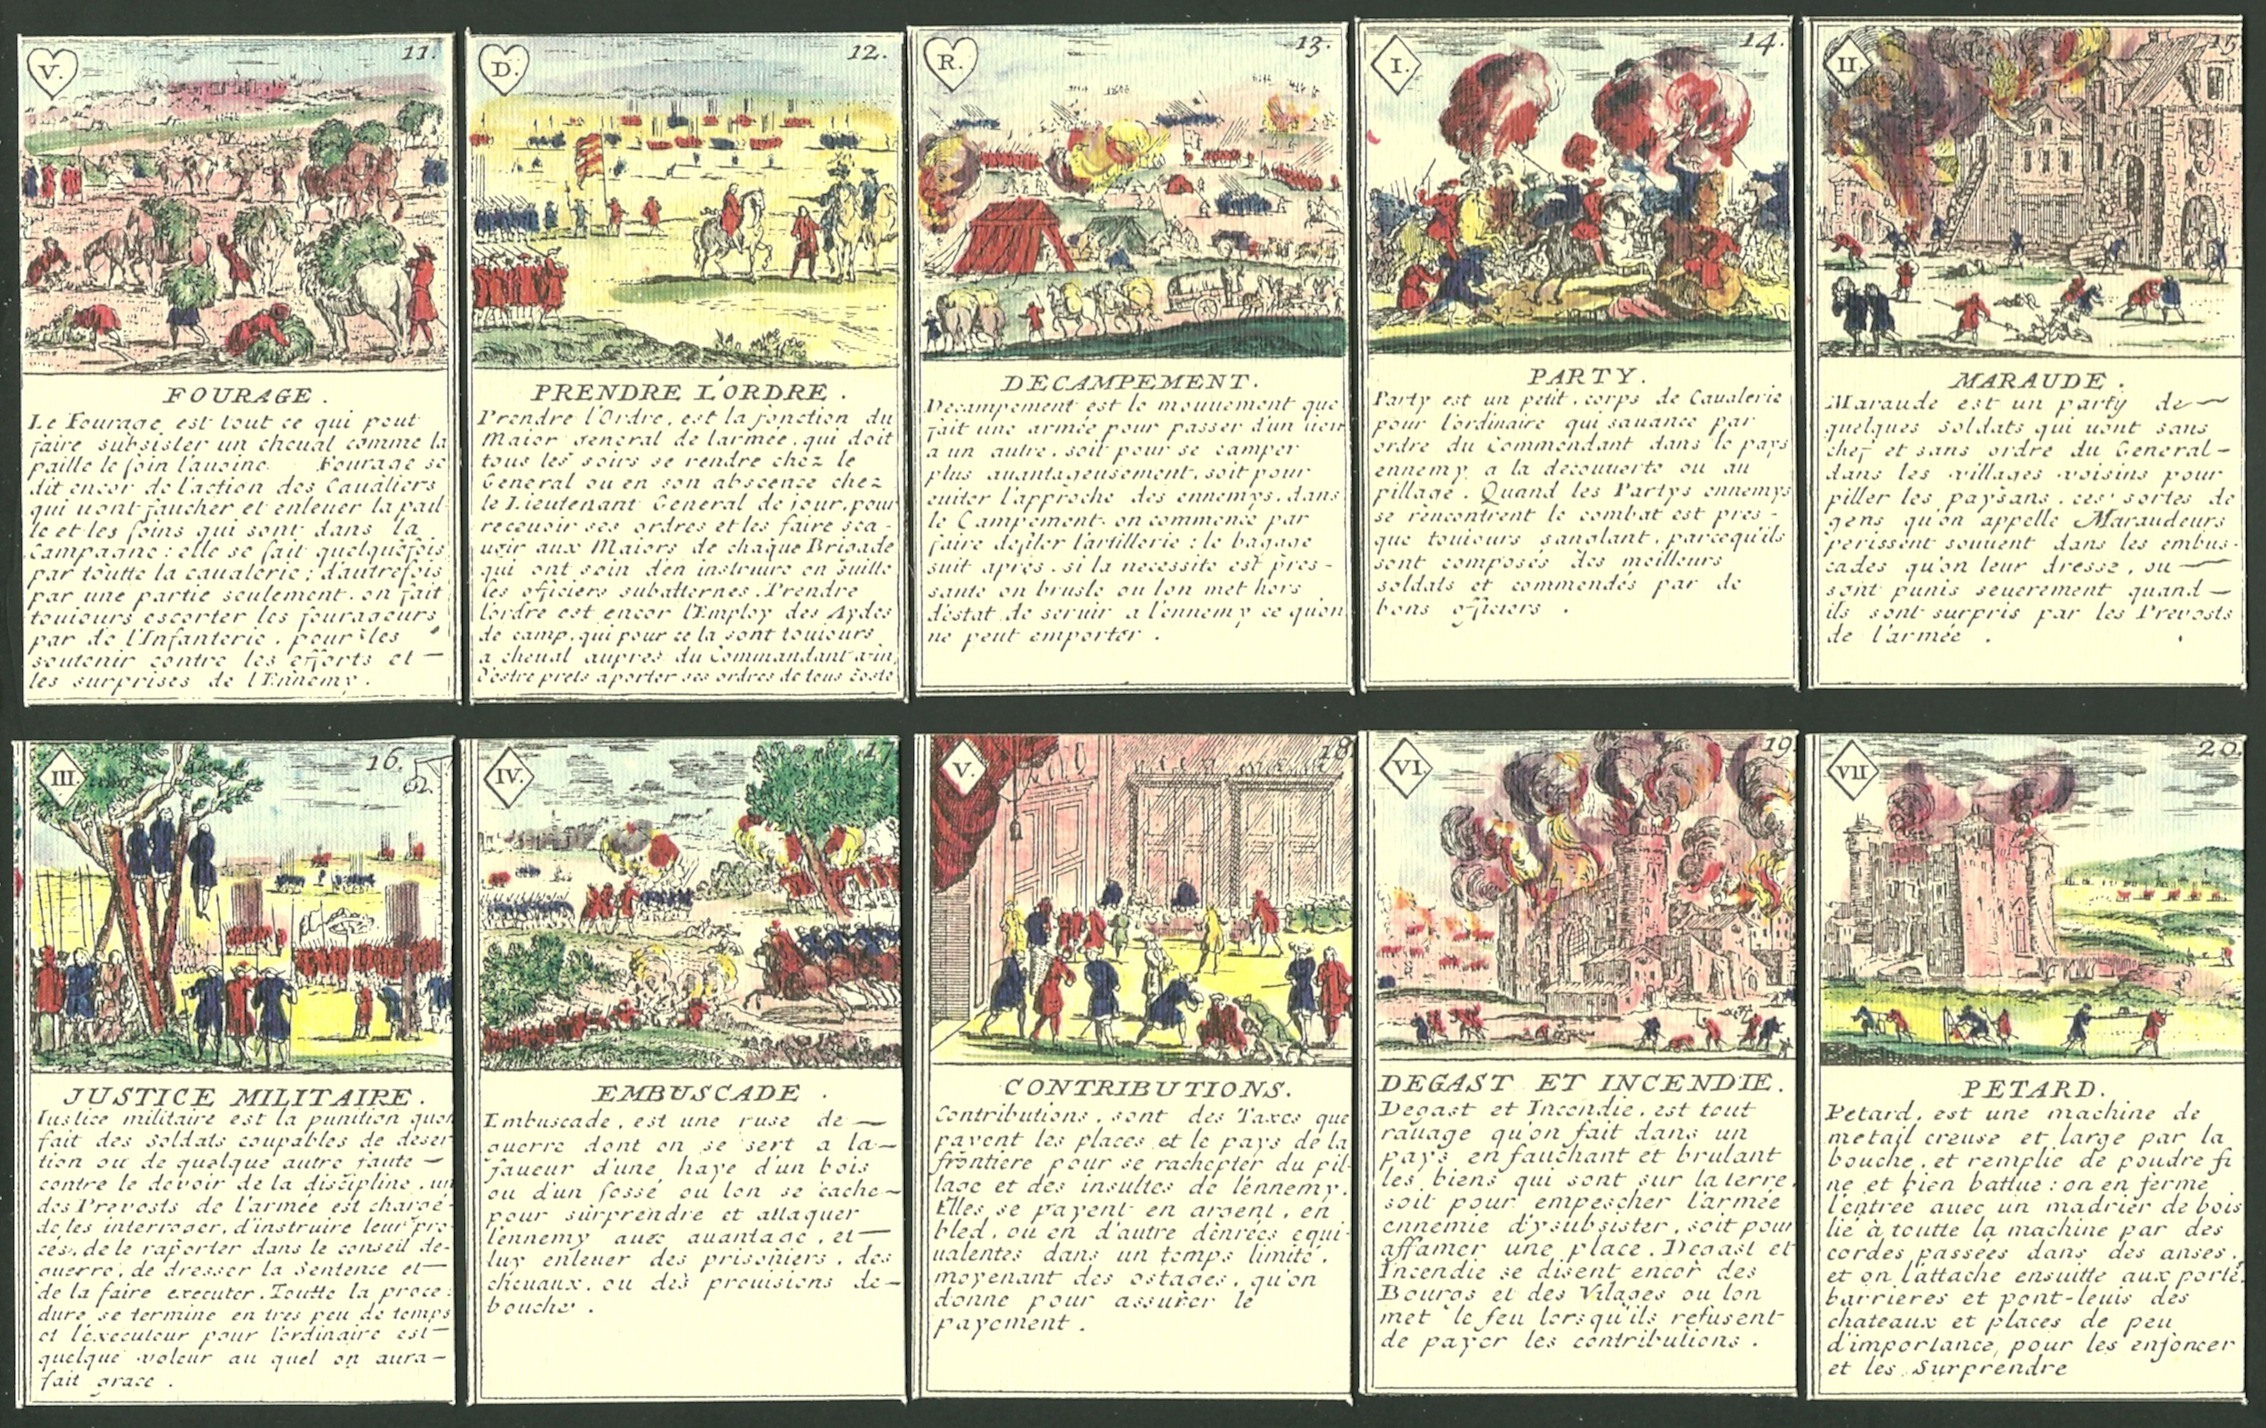 V.
11.
FOURAGE.
Le Fourage est tout ce qui peut
faire subsister un cheual comme la
paille le foin l'auoine. Fourage se
dit encor de l'action des Caualiers
qui uont faucher et enleuer la pail
le et les foins qui sont dans la
Campagne : elle se fait quelquefois
par toutte la caualerie ; d'autrefois
par une partie seulement. on fait
toujours escorter les fourageurs
par de l'Infanterie, pour les
soutenir contre les efforts et
les surprises de l'Ennemy.
D.
12.
PRENDRE L'ORDRE.
Prendre l'Ordre, est la fonction du
Maior general de larmée, qui doit
tous les soirs se rendre chez le
General ou en son abscence chez
le Lieutenant General de jour, pour
receuoir ses ordres et les faire sca-
uoir aux Maiors de chaque Brigade
qui ont soin d'en instruire en suille
les officiers subalternes. Prendre
l'ordre est encor l'Employ des Aydes
de camp, qui pour ce la sont toujours
a cheual aupres du Commandant
d'estre prets aporter ses ordres de tous costé
R.
13.
DECAMPEMENT.
Decampement est le mouuement que
fait une armée pour passer d'un lieu
a un autre, soit pour se camper
plus auantageusement, soit pour
euiter l'approche des ennemys, dans
le Campement on commence par
faire defiler l'artillerie : le bagage
suit apres. si la necessité est pres-
sante on brusle ou lon met hors
d'estat de seruir a l'ennemy ce qu'on
ne peut emporter.
I.
14.
PARTY.
Party est un petit corps de Caualerie
pour l'ordinaire qui sauance par
ordre du Commendant dans le pays
ennemy a la decouuerte ou au
pillage. Quand les Partys ennemys
se rencontrent le combat est pres-
que toujours sanglant, parcequ'ils
sont composés des meilleurs
soldats et commendés par de
bons officiers.
II.
15
MARAUDE.
Maraude est un party de
quelques soldats qui uont sans
chef et sans ordre du General
dans les villages voisins pour
piller les paysans. ces sortes de
gens qu'on appelle Maraudeurs
perissent souuent dans les embus-
cades qu'on leur dresse, ou
sont punis seuerement quand
ils sont surpris par les Prevosts
de l'armée.
III.
16.
JUSTICE MILITAIRE.
Justice militaire est la punition quon
fait des soldats coupables de deser
tion ou de quelque autre faute
contre le devoir de la discipline. un
des Prevosts de l'armée est chargé
de les interroger, d'instruire leur pro-
cés, de le raporter dans le conseil de
guerre, de dresser la Sentence et
de la faire executer. Toutte la proce-
dure se termine en tres peu de temps
et l'executeur pour l'ordinaire est
quelque voleur au quel on aura
fait grace.
IV.
17
EMBUSCADE.
Embuscade, est une ruse de
guerre dont on se sert a la
faueur d'une haye d'un bois
ou d'un fossé ou lon se cache
pour surprendre et attaquer
l'ennemy auec auantage, et
luy enleuer des prisoniers, des
cheuaux, ou des prouisions de
bouche.
V.
18
CONTRIBUTIONS.
Contributions, sont des Taxes que
payent les places et le pays de la
frontiere pour se rachepter du pil-
lage et des insultes de l'ennemy.
Elles se payent en argent, en
bled, ou en d'autre denrées equi-
ualentes dans un temps limité,
moyenant des ostages, qu'on
donne pour assurer le
payement.
VI.
19.
DEGAST ET INCENDIE.
Degast et Incendie, est tout
rauage qu'on fait dans un
pays en fauchant et brulant
les biens qui sont sur la terre.
soit pour empescher l'armée
ennemie d'y subsister, soit pour
affamer une place. Degast et
Incendie se disent encor des
Bourgs et des Vilages ou lon
met le feu lorsqu'ils refusent
de payer les contributions.
VII
20.
PETARD.
Petard, est une machine de
metail creuse et large par la
bouche, et remplie de poudre fi
ne et bien battue : on en ferme
l'entrée auec un madrier de bois
lié à toutte la machine par des
cordes passées dans des anses.
et on l'attache ensuitte aux porte
barrieres et pont-leuis des
chateaux et places de peu
d'importance, pour les enfoncer
et les Surprendre